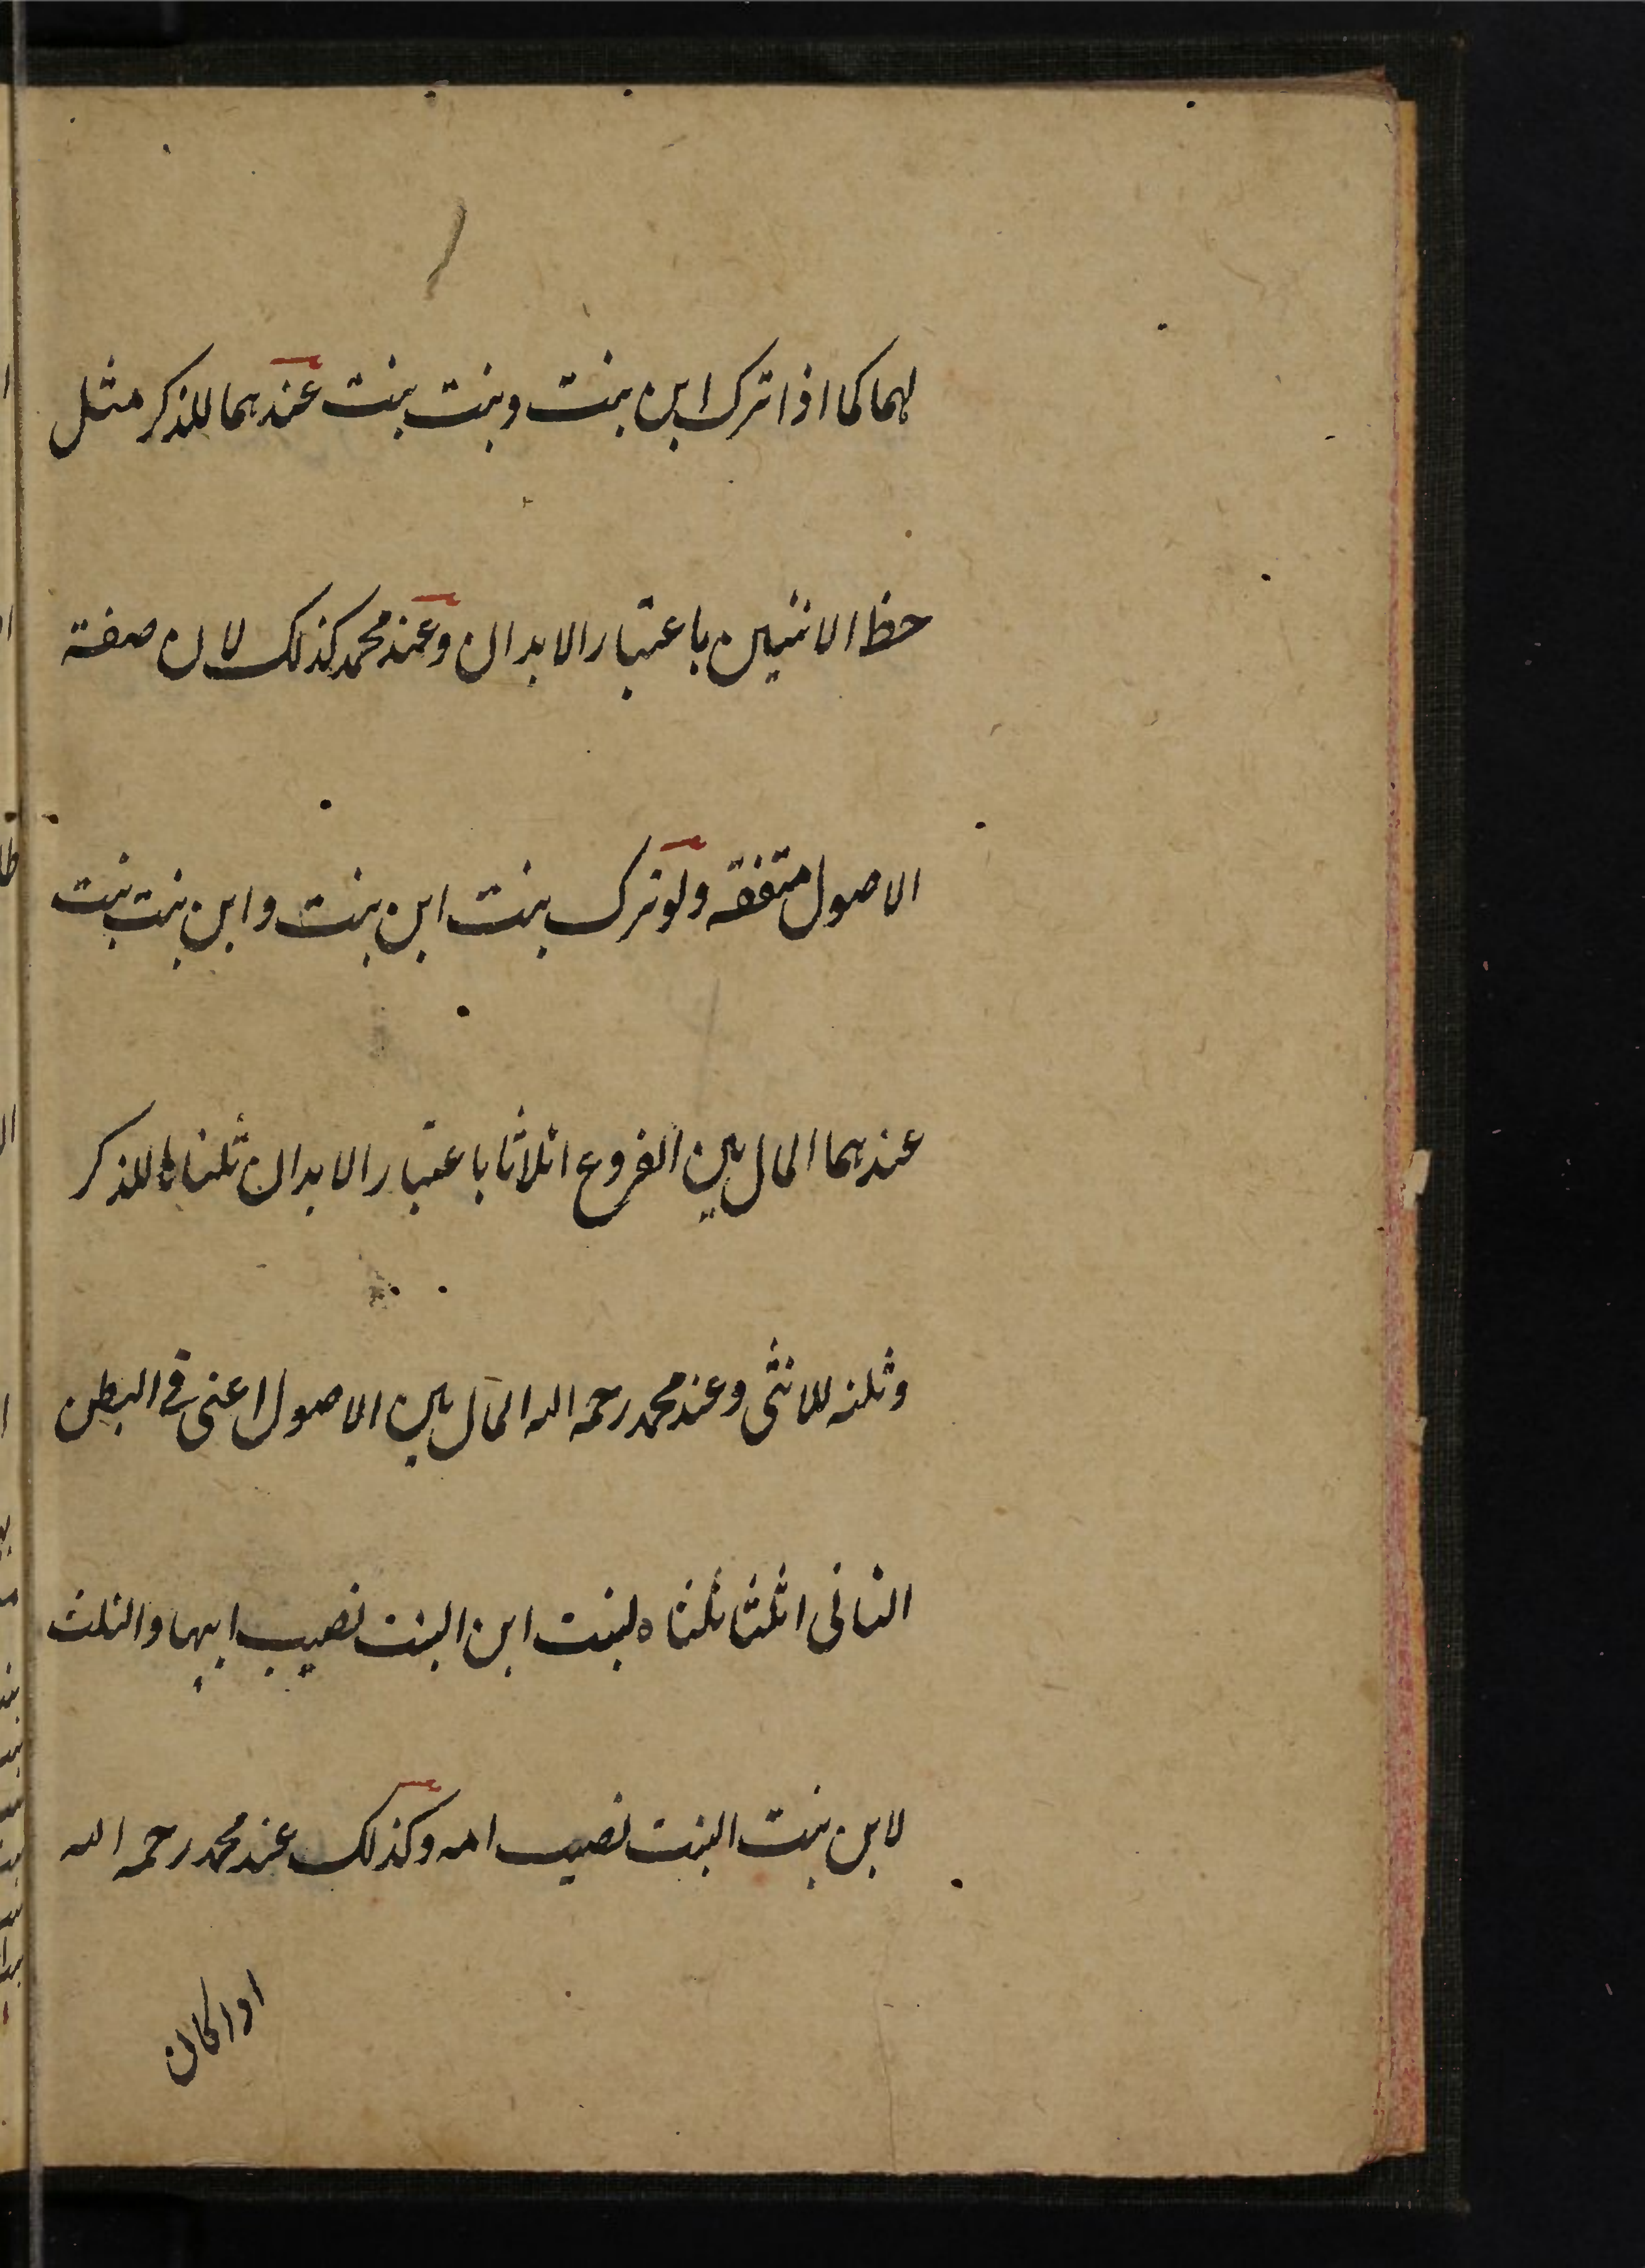 لهما كما اذا ترك ابن بنت وبنت بنت عندهما للذكر مثل
حظ الانثيين باعتبار الابدان وعند محمد كذلك لان صفة
الاصول متفقه ولو ترك بنت ابن بنت وابن بنت بنت
عندهما المال بين الفروع اثلاثا باعتبار الابدان ثلثاه للذكر
وثلثه للانثى وعند محمد رحمه الله المال بين الاصول اعنى فى البطن
الثانى اثلثا ثلثاه لبنت ابن البنت نصيب ابيها والثلث
لابن بنت البنت نصيب امه وكذلك عند محمد رحمه الله
اذا كان